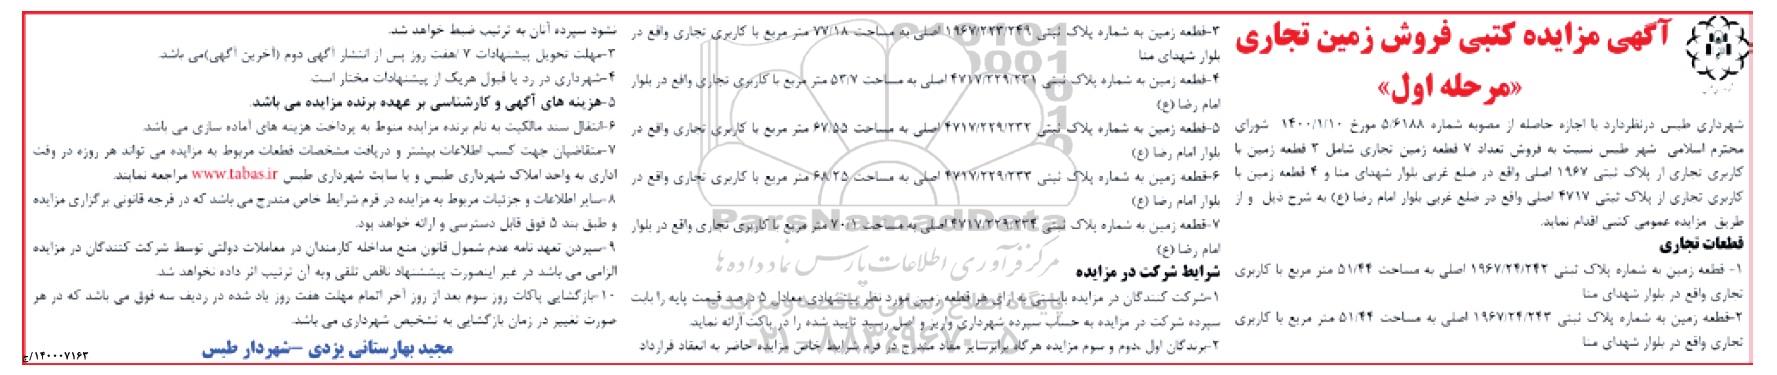 آگهی مزایده کتبی فروش زمین تجاری
«مرحله اول»
شهرداری طبس درنظردارد با اجازه حاصله از مصوبه شماره ۵/۶۱۸۸ مورخ ۱۴۰۰/۱/۱۰ شورای
محترم اسلامی شهر طبس نسبت به فروش تعداد ۷ قطعه زمین تجاری شامل ۳ قطعه زمین با
کاربری تجاری از پلاک ثبتی ۱۹۶۷ اصلی واقع در ضلع غربی بلوار شهدای منا و ۴ قطعه زمین با
کاربری تجاری از پلاک ثبتی ۴۷۱۷ اصلی واقع در ضلع غربی بلوار امام رضا (ع) به شرح ذیل و از
طریق مزایده عمومی کتبی اقدام نماید.
قطعات تجاری
۱- قطعه زمین به شماره پلاک ثبتی ۱۹۶۷/۲۴/۲۴۲ اصلی به مساحت ۵۱/۴۴ متر مربع با کاربری
تجاری واقع در بلوار شهدای منا
۲-قطعه زمین به شماره پلاک ثبتی ۱۹۶۷/۲۴/۲۴۳ اصلی به مساحت ۵۱/۴۴ متر مربع با کاربری
تجاری واقع در بلوار شهدای منا
۳-قطعه زمین به شماره پلاک ثبتی ۱۹۶۷/۲۲۳/۲۴۹ اصلی به مساحت ۷۷/۱۸ متر مربع با کاربری تجاری واقع در
بلوار شهدای منا
۴-قطعه زمین به شماره پلاک ثبتی ۴۷۱۷/۲۲۹/۲۳۱ اصلی به مساحت ۵۳/۷ متر مربع با کاربری تجاری واقع در بلوار
امام رضا (ع)
۵-قطعه زمین به شماره پلاک ثبتی ۴۷۱۷/۲۲۹/۲۳۲ اصلی به مساحت ۶۷/۵۵ متر مربع با کاربری تجاری واقع در
بلوار امام رضا (ع)
۶-قطعه زمین به شماره پلاک ثبتی ۴۷۱۷/۲۲۹/۲۳۳ اصلی به مساحت ۶۸/۲۵ متر مربع با کاربری تجاری واقع در
بلوار امام رضا (ع)
۷-قطعه زمین به شماره پلاک ثبتی ۴۷۱۷/۲۲۹/۲۳۴ اصلی به مساحت ۷۰/۲ متر مربع با کاربری تجاری واقع در بلوار
امام رضا (ع)
شرایط شرکت در مزایده
۱-شرکت کنندگان در مزایده بایستی به ازای هر قطعه زمین مورد نظر پیشنهادی معادل ۵ درصد قیمت پایه را بابت
سپرده شرکت در مزایده به حساب سپرده شهرداری واریز و اصل رسید تایید شده را در پاکت ارائه نماید.
۲-برندگان اول ،دوم و سوم مزایده هرگاه برابرسایر مفاد مندرج در فرم شرایط خاص مزایده حاضر به انعقاد قرارداد
نشود سپرده آنان به ترتیب ضبط خواهد شد.
۳-مهلت تحویل پیشنهادات ۷ /هفت روز پس از انتشار آگهی دوم (آخرین آگهی)می باشد.
۴-شهرداری در رد یا قبول هریک از پیشنهادات مختار است
۵-هزینه های آگهی و کارشناسی بر عهده برنده مزایده می باشد.
۶-انتقال سند مالکیت به نام برنده مزایده منوط به پرداخت هزینه های آماده سازی می باشد.
۷-متقاضیان جهت کسب اطلاعات بیشتر و دریافت مشخصات قطعات مربوط به مزایده می تواند هر روزه در وقت
اداری به واحد املاک شهرداری طبس و یا سایت شهرداری طبس www.tabas.ir مراجعه نمایند.
۸-سایر اطلاعات و جزئیات مربوط به مزایده در فرم شرایط خاص مندرج می باشد که در فرجه قانونی برگزاری مزایده
و طبق بند ۵ فوق قابل دسترسی و ارائه خواهد بود.
۹-سپردن تعهد نامه عدم شمول قانون منع مداخله کارمندان در معاملات دولتی توسط شرکت کنندگان در مزایده
الزامی می باشد در غیر اینصورت پیشنهاد ناقص تلقی وبه آن ترتیب اثر داده نخواهد شد.
۱۰-بازگشایی پاکات روز سوم بعد از روز آخر اتمام مهلت هفت روز یاد شده در ردیف سه فوق می باشد که در هر
صورت تغییر در زمان بازگشایی به تشخیص شهرداری می باشد.
مجید بهارستانی یزدی –شهردار طبس
۱۴۰۰۰۷۱۶۳/ج
ParsNamadData
مرکز فرآوری اطلاعات پارس نماد داده ها